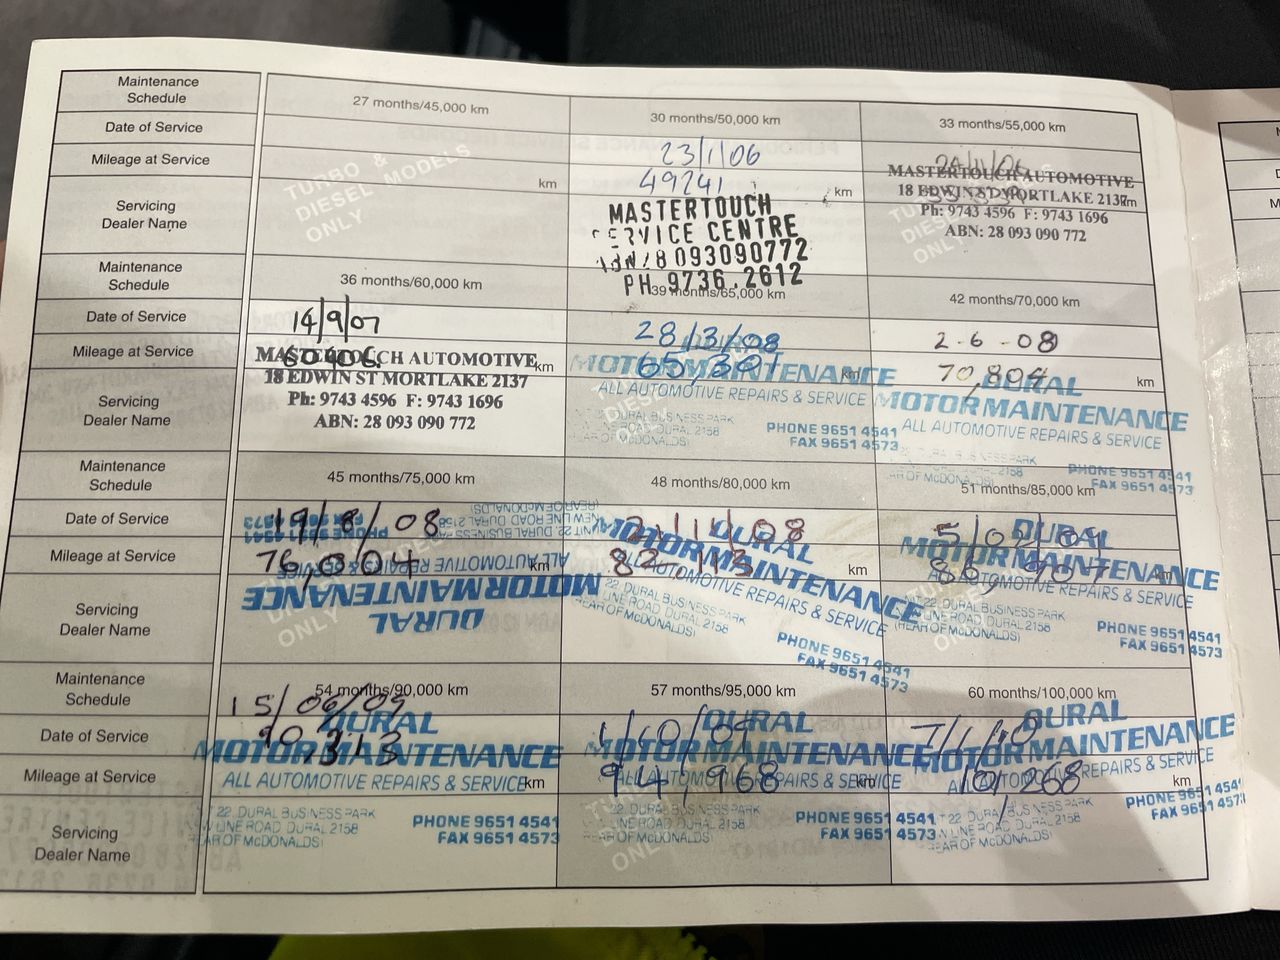 Maintenance Schedule
27 months/45,000 km
30 months/50,000 km
33 months/55,000 km
Date of Service
23/1/06
Mileage at Service
km
49241
km
Servicing Dealer Name
TURBO & DIESEL MODELS ONLY
MASTERTOUCH
SERVICE CENTRE
093090772
PH 9736.2612
MASTERTOUCH AUTOMOTIVE
18 EDWIN ST MORTLAKE 2137
km
Ph: 9743 4596 F: 9743 1696
ABN: 28 093 090 772
Maintenance Schedule
36 months/60,000 km
39 months/65,000 km
42 months/70,000 km
Date of Service
14/9/07
28/3/08
2-6-08
Mileage at Service
km
km
70,804
km
Servicing Dealer Name
MASTERTOUCH AUTOMOTIVE
18 EDWIN ST MORTLAKE 2137
Ph: 9743 4596 F: 9743 1696
ABN: 28 093 090 772
DURAL
MOTOR MAINTENANCE
ALL AUTOMOTIVE REPAIRS & SERVICE
DURAL BUSINESS PARK
LINE ROAD DURAL 2158
(REAR OF McDONALDS)
PHONE 9651 4541
FAX 9651 4573
DURAL
MOTOR MAINTENANCE
ALL AUTOMOTIVE REPAIRS & SERVICE
DURAL 2158
OF McDONALDS)
PHONE 9651 4541
FAX 9651 4573
Maintenance Schedule
45 months/75,000 km
48 months/80,000 km
51 months/85,000 km
Date of Service
19/8/08
2/11/08
Mileage at Service
76,004
km
82,113
km
km
Servicing Dealer Name
DURAL
MOTOR MAINTENANCE
ALL AUTOMOTIVE REPAIRS & SERVICE
UNIT 22, DURAL BUSINESS PARK
NEW LINE ROAD DURAL 2158
(REAR OF McDONALDS)
DURAL
MOTOR MAINTENANCE
ALL AUTOMOTIVE REPAIRS & SERVICE
22 DURAL BUSINESS PARK
LINE ROAD DURAL 2158
(REAR OF McDONALDS)
PHONE 9651 4541
FAX 9651 4573
DURAL
MOTOR MAINTENANCE
AUTOMOTIVE REPAIRS & SERVICE
22 DURAL BUSINESS PARK
LINE ROAD DURAL 2158
(REAR OF McDONALDS)
PHONE 9651 4541
FAX 9651 4573
Maintenance Schedule
54 months/90,000 km
57 months/95,000 km
60 months/100,000 km
Date of Service
15/06/09
1/10/09
7/1/10
Mileage at Service
90,313
km
94,968
km
101268
km
Servicing Dealer Name
DURAL
MOTOR MAINTENANCE
ALL AUTOMOTIVE REPAIRS & SERVICE
22 DURAL BUSINESS PARK
LINE ROAD DURAL 2158
REAR OF McDONALDS)
PHONE 9651 4541
FAX 9651 4573
DURAL
MOTOR MAINTENANCE
REPAIRS & SERVICE
22 DURAL BUSINESS PARK
LINE ROAD DURAL 2158
REAR OF McDONALDS)
PHONE 9651 4541
FAX 9651 4573
DURAL
MOTOR MAINTENANCE
REPAIRS & SERVICE
22 DURAL BUSINESS PARK
LINE ROAD DURAL 2158
REAR OF McDONALDS)
PHONE 9651 4541
FAX 9651 4573